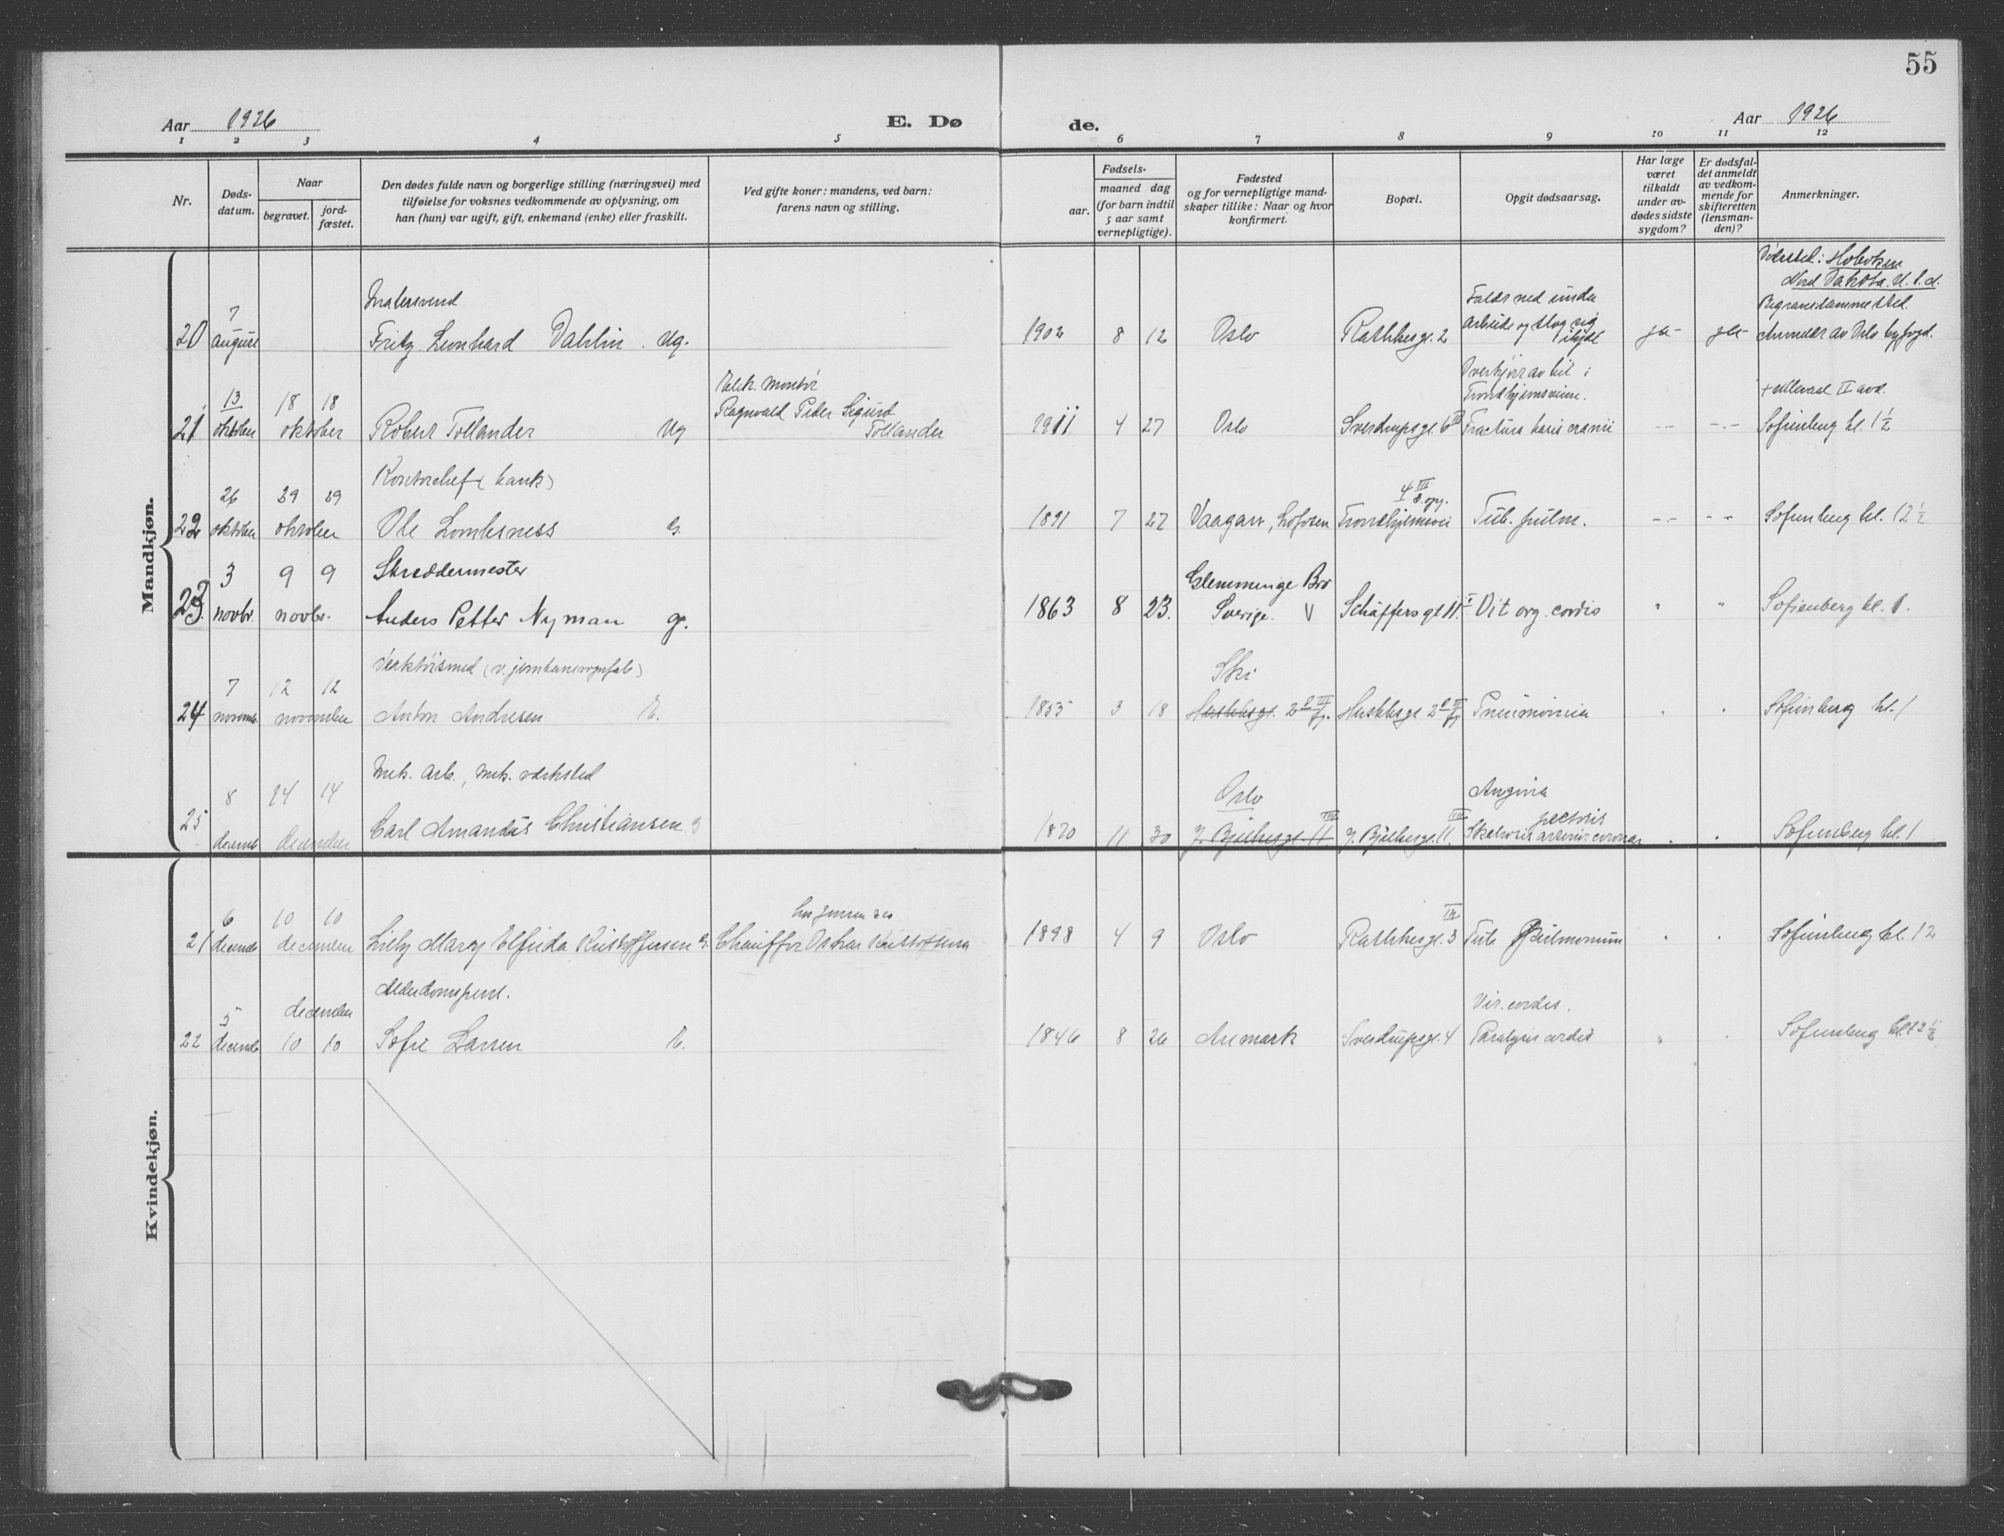 55
Aar 1926
E. Dø
de.
Aar 1926
1 2 3 4 5 6 7 8 9 10 11 12
Nr.
Døds-
datum.
Naar
begravet.
jord-
fæstet.
Den dødes fulde navn og borgerlige stilling (næringsvei) med
tilføielse for voksnes vedkommende av oplysning, om
han (hun) var ugift, gift, enkemand (enke) eller fraskilt.
Ved gifte koner: mandens, ved barn:
farens navn og stilling.
Fødsels-
aar.
maaned dag
(for barn indtil
5 aar samt
vernepligtige).
Fødested
og for vernepligtige mand-
skaper tillike: Naar og hvor
konfirmert.
Bopæl.
Opgit dødsaarsag.
Har læge
været
tilkaldt
under av-
dødes sidste
sygdom?
Er dødsfal-
det anmeldt
av vedkom-
mende for
skifteretten
(lensman-
den)?
Anmerkninger.
Mandkjøn.
20
7
august
Malersvend
Fritz Leonhard Dahlin. Ug.
1902 8 12
Oslo
Rathkesgt. 2
Faldt ned under
arbeide og slog sig
ihjel
ja
ja
Dødssted: Hoboken
Nord Dakota. U. S. A.
Begravet samme sted.
Anmeldt av Oslo byfogd.
21
13
oktober
18 18
oktober
Robert Tollander Ug
Elek. montør
Ragnvald Peder Sigurd
Tollander
1911 4 27
Oslo
Sverdrupsgt. 6 III
Overkjørt av bil i
Trondhjemsveien.
Fractura basis cranii
-..-
-..-
+ Ullevaal II avd.
Sofienberg kl. 1 1/2
22
26
oktober
29 29
oktober
Kontorchef (bank)
Ole Lombesness G.
1891 7 27
Vaagan, Lofoten
4 III
Trondhjemsvei
Tub. pulm.
-..-
-..-
Sofienberg kl. 12 1/2
23
3
novbr.
9 9
novbr.
Skræddermester
Anders Petter Nyman g.
1863 8 23.
Glemminge Bro
Sverige. V
Schäffersgt 11. I
Vit. org. cordis
"
"
Sofienberg kl. 1.
24
7
novemb.
12 12
november
Anton Andresen E.
1855 3 18
Ski
Pneumonia
"
"
Sofienberg kl. 1
25
8
decemb
14 14
december
Mek. arb., mek. værksted
Carl Amandus Christiansen G
1870 11 30
Oslo
J. Bjelkesgt. 11 III
J. Bjelkesgt. 11. III
Angina
pectoris
"
"
Sofienberg kl. 1
Kvindekjøn.
21
6
decemb
10 10
december
Lilly Mary Elfrida Kristoffersen G.
Chauffør Oskar Kristoffersen
1898 4 9
Oslo
Rathkesgt. 3 IV
Tub. Pulmonum
"
"
Sofienberg kl. 12
22
5
decemb
december
10 10
Alderdomspens.
Sofie Larsen E.
1846 8 26
Aremark
Sverdrupsgt. 4
Vit. cordis.
Paralysis cordis
"
"
Sofienberg kl. 12 1/2